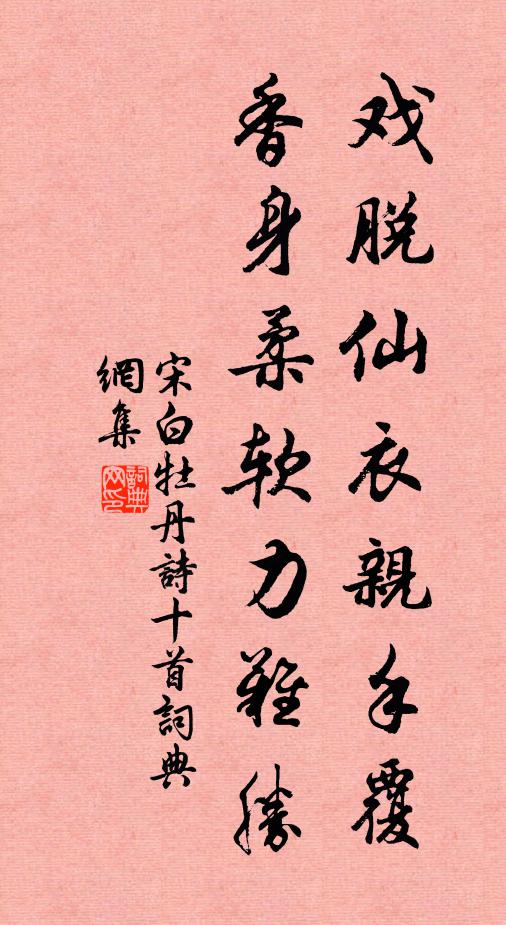 戏脱仙衣親手覆
香身柔软力難勝
宋白牡丹詩十首詞典
網集
詞典网印